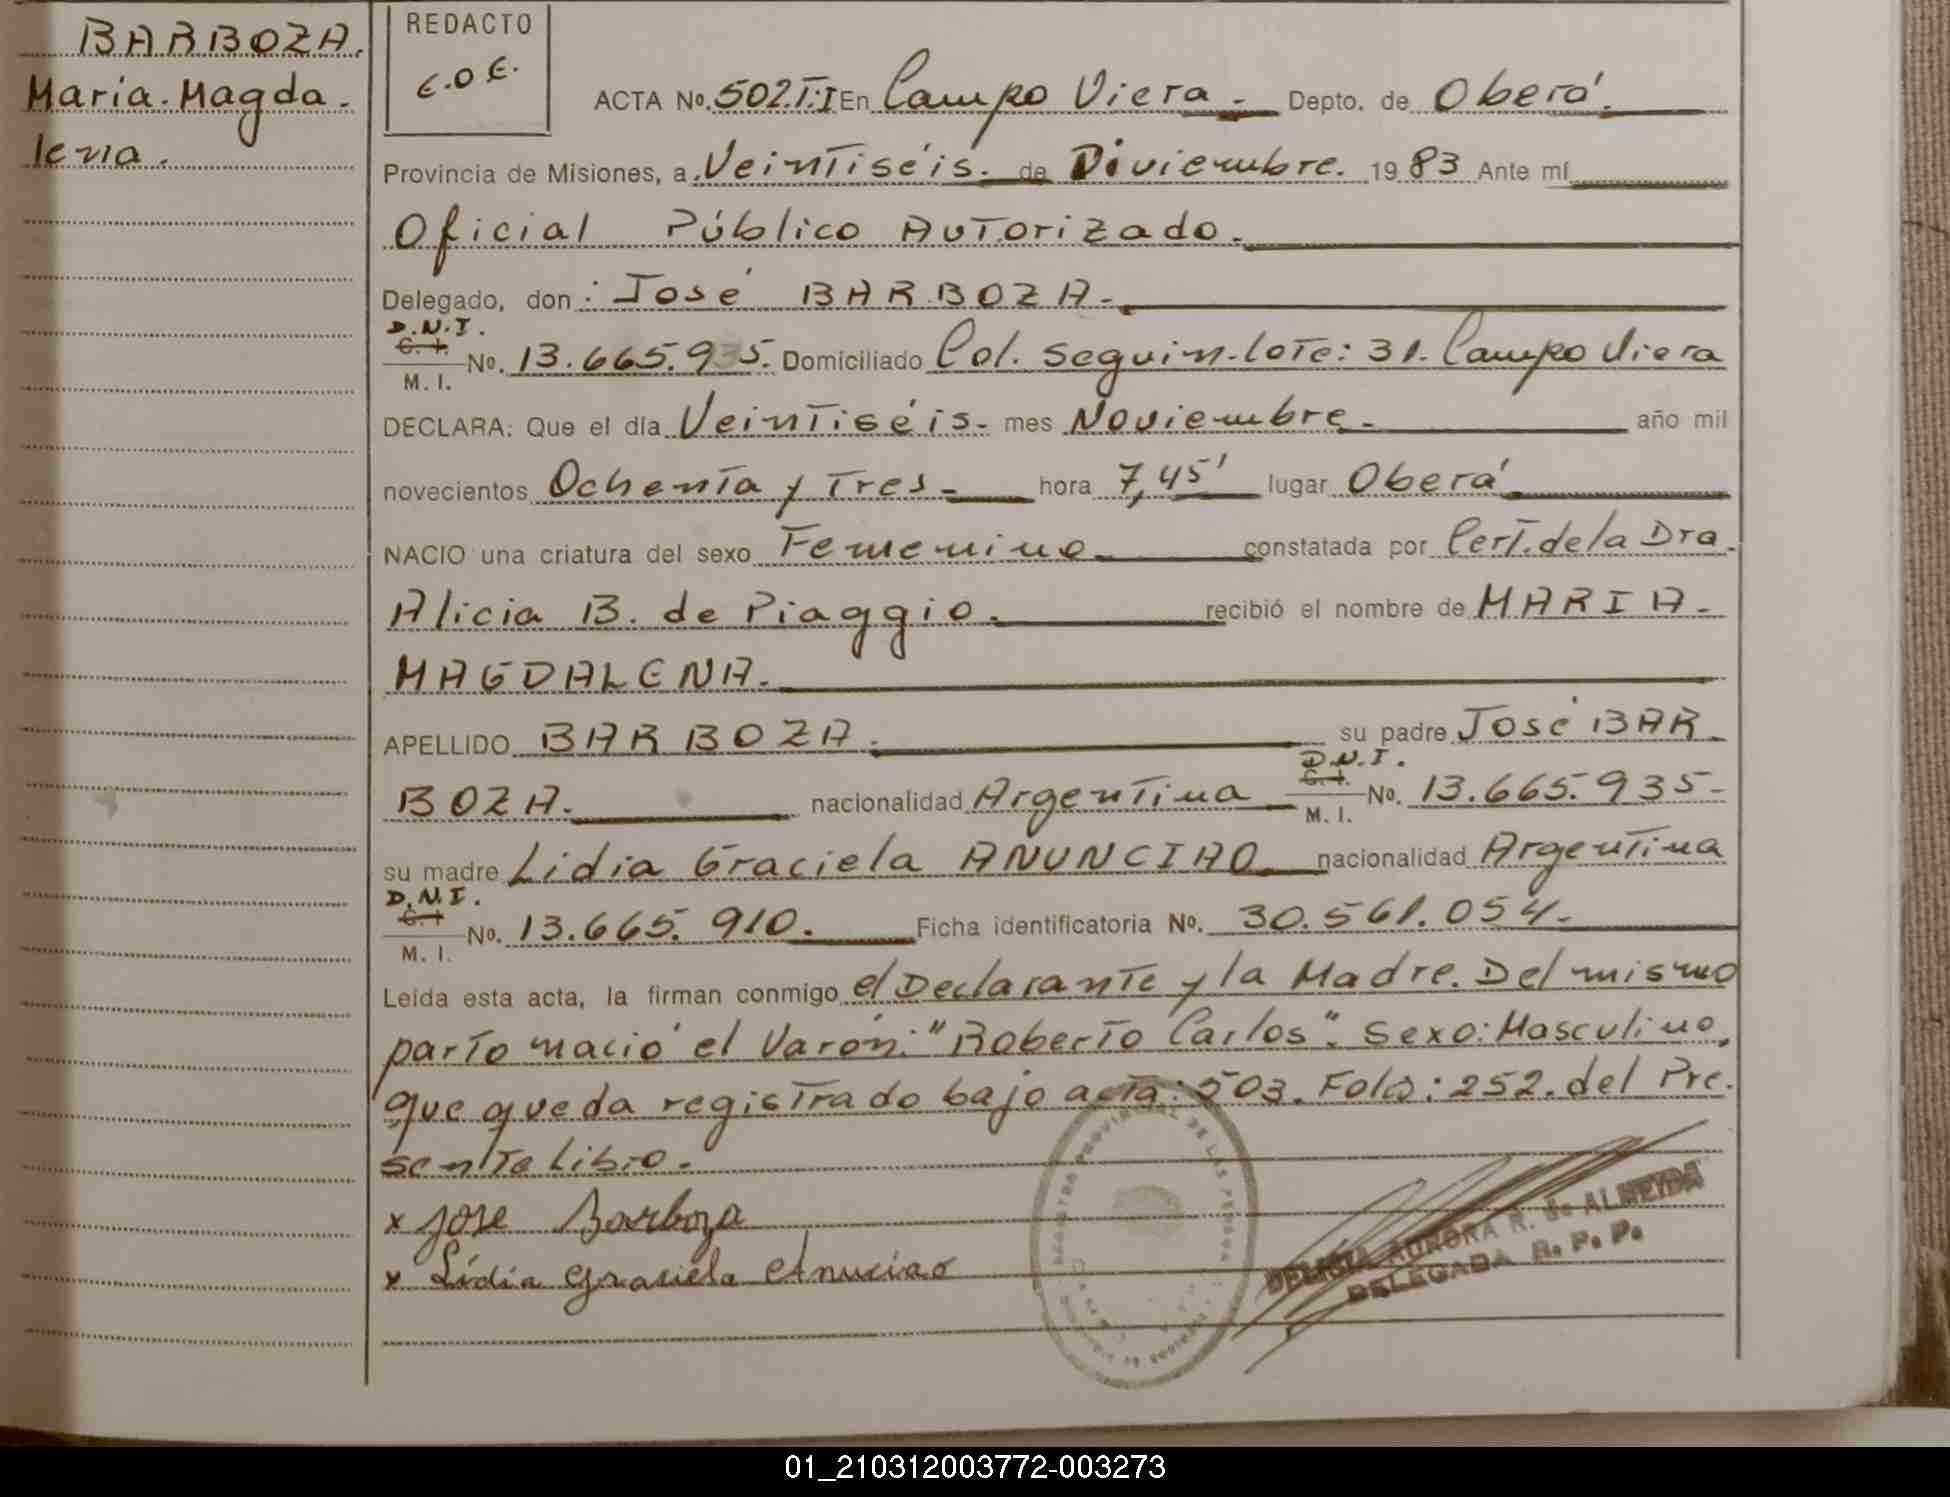 BARBOZA.
Maria.Magda.
lena.
REDACTO
E.O.E.
ACTA No. 502.T:I En Campo Viera.- Depto. de Oberá.
Provincia de Misiones, a Veintiséis. de Diviembre. 1983 Ante mí
Oficial Público Autorizado.
Delegado, don: José BARBOZA.
D.N.I.
C. I.
M. I.
No. 13.665.935. Domiciliado Col. Seguin-lote: 31. Campo Viera
DECLARA: Que el día Veintiséis- mes Noviembre.- año mil
novecientos Ochenta y Tres- hora 7,45' lugar Oberá
NACIO una criatura del sexo Femenino constatada por Cert. de la Dra.
Alicia B. de Piaggio. recibió el nombre de MARIA-
MAGDALENA.
APELLIDO BARBOZA. su padre José BAR
BOZA. nacionalidad Argentina D.N.I. C. I. M. I. No. 13.665.935-
su madre Lidia Graciela ANUNCIAO nacionalidad Argentina
D.N.I.
C. I.
M. I.
No. 13.665.910. Ficha identificatoria No. 30.561.054.
Leída esta acta, la firman conmigo el Declarante y la Madre. Del mismo
parto nació el Varón: "Roberto Carlos". Sexo: Masculino,
que queda registrado bajo acta: 503. Folio: 252. del Pre.
sente Libro.-
x Jose Barboza
x Lidia Graciela Anuciao
REGISTRO PROVINCIAL DE LAS PERSONAS
DELICIA AURORA R. de ALMEIDA
DELEGADA R. P. P.
01_210312003772-003273